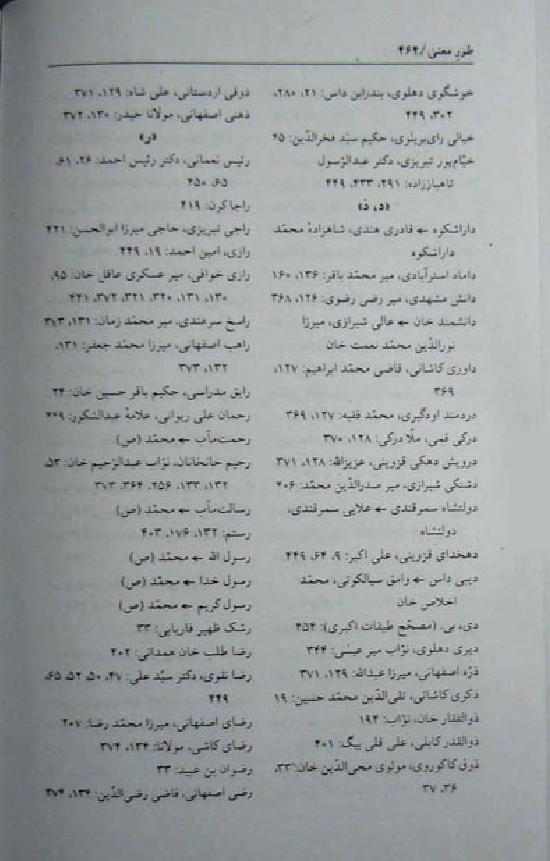 طورِ معنی/۴۶۴
خوشگوی دهلوی، بندرابن داس: ۲۱، ۲۸۰،
۳۰۲، ۴۴۹
خیالی رای‌بریلوی، حکیم سیّد فخرالدّین: ۴۵
خیّام‌پور تبریزی، دکتر عبدالرّسول
تاهباززاده: ۲۹۱، ۴۳۳، ۴۴۹
«د، ذ»
داراشکوه ← قادری هندی، شاهزادهٔ محمّد
داراشکوه
داماد استرآبادی، میر محمّد باقر: ۱۳۶، ۱۶۰
دانش مشهدی، میر رضی رضوی: ۱۲۶، ۳۶۸
دانشمند خان ← عالی شیرازی، میرزا
نورالدّین محمّد نعمت خان
داوری کاشانی، قاضی محمّد ابراهیم: ۱۲۷،
۳۶۹
دردمند اودگیری، محمّد فقیه: ۱۲۷، ۳۶۹
درکی قمی، ملّا درکی: ۱۲۸، ۳۷۰
درویش دهکی قزوینی، عزیزالله: ۱۲۸، ۳۷۱
دشتکی شیرازی، میر صدرالدّین محمّد: ۴۰۶
دولتشاه سمرقندی ← علایی سمرقندی،
دولتشاه
دهخدای قزوینی، علی اکبر: ۹، ۶۴، ۴۴۹
دیبی داس ← رامق سیالکوتی، محمّد
اخلاص خان
دی، بی. (مصحّح طبقات اکبری): ۴۵۴
دیری دهلوی، نوّاب میر عیسی: ۳۴۴
ذرّه اصفهانی، میرزا عبدالله: ۱۲۹، ۳۷۱
ذکری کاشانی، تقی‌الدّین محمّد حسین: ۱۹
ذوالفقار خان، نوّاب: ۱۹۴
ذوالقدر کابلی، علی قلی بیگ: ۴۰۱
ذوق کاکوروی، مولوی محی‌الدّین خان: ۳۳،
۳۶، ۳۷
ذوقی اردستانی، علی شاه: ۱۲۹، ۳۷۱
ذهنی اصفهانی، مولانا حیدر: ۱۳۰، ۳۷۲
«ر»
رئیس نعمانی، دکتر رئیس احمد: ۲۶، ۶۱،
۶۵، ۴۵۰
راجا کرن: ۴۱۹
راجی تبریزی، حاجی میرزا ابوالحسن: ۴۲۱
رازی، امین احمد: ۱۹، ۴۴۹
رازی خوافی، میر عسکری عاقل خان: ۹۵،
۱۳۰، ۱۳۱، ۳۲۰، ۳۲۱، ۳۷۲، ۴۴۱
راسخ سرهندی، میر محمّد زمان: ۱۳۱، ۳۱۳
راهب اصفهانی، میرزا محمّد جعفر: ۱۳۱،
۱۳۲، ۳۷۳
رایق مدراسی، حکیم باقر حسین خان: ۲۴
رحمان علی ریوانی، علامهٔ عبدالشکور: ۴۴۹
رحمت‌مآب ← محمّد (ص)
رحیم خانخانان، نوّاب عبدالرّحیم خان: ۵۳،
۱۳۲، ۱۳۳، ۲۵۶، ۳۶۴، ۳۷۳
رسالت‌مآب ← محمّد (ص)
رستم: ۱۳۲، ۱۷۶، ۴۰۳
رسول الله ← محمّد (ص)
رسول خدا ← محمّد (ص)
رسول کریم ← محمّد (ص)
رشک ظهیر فاریابی: ۳۳
رضا طلب خان همدانی: ۴۰۲
رضا نقوی، دکتر سیّد علی: ۴۷، ۵۰، ۵۲، ۶۵،
۴۴۹
رضای اصفهانی، میرزا محمّد رضا: ۲۰۷
رضای کاشی، مولانا: ۱۳۴، ۳۷۴
رضوان بن عبید: ۳۳
رضی اصفهانی، قاضی رضی‌الدّین: ۱۳۴، ۳۷۴